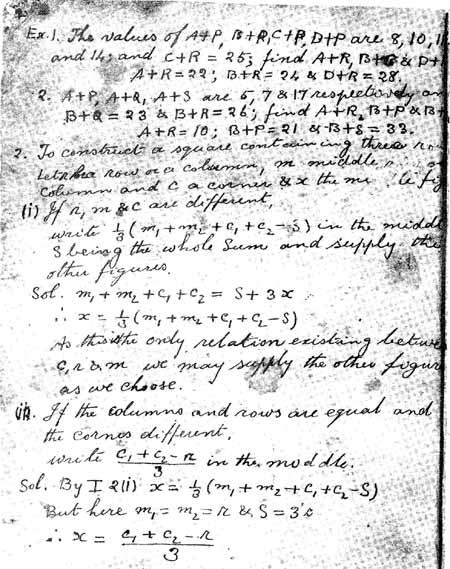 Ex. 1. The values of A+P, B+Q, C+R, D+P are 8, 10, 1
and 14; and C+R = 25; find A+R, B+ & D+
A+R = 22; B+R = 24 & D+R = 28.
2. A+P, A+Q, A+S are 5, 7 & 17 respectively an
B+Q = 23 & B+R = 26; find A+R, B+P & B+
A+R = 10; B+P = 21 & B+S = 33.
2. To construct a square containing three row
Let r be a row or a column, m middle
column and c a corner & x the m le fig
(i) If r, m & c are different,
write 1/3 (m₁ + m₂ + c₁ + c₂ - S) in the middl
S being the whole sum and supply the
other figures.
Sol. m₁ + m₂ + c₁ + c₂ = S + 3x
∴ x = 1/3 (m₁ + m₂ + c₁ + c₂ - S)
As this is the only relation existing betwe
c, r & m we may supply the other figur
as we choose.
(ii). If the columns and rows are equal and
the corners different,
write (c₁ + c₂ - r)/3 in the middle.
Sol. By I 2(i) x = 1/3 (m₁ + m₂ + c₁ + c₂ - S)
But here m₁ = m₂ = r & S = 3r
∴ x = (c₁ + c₂ - r)/3